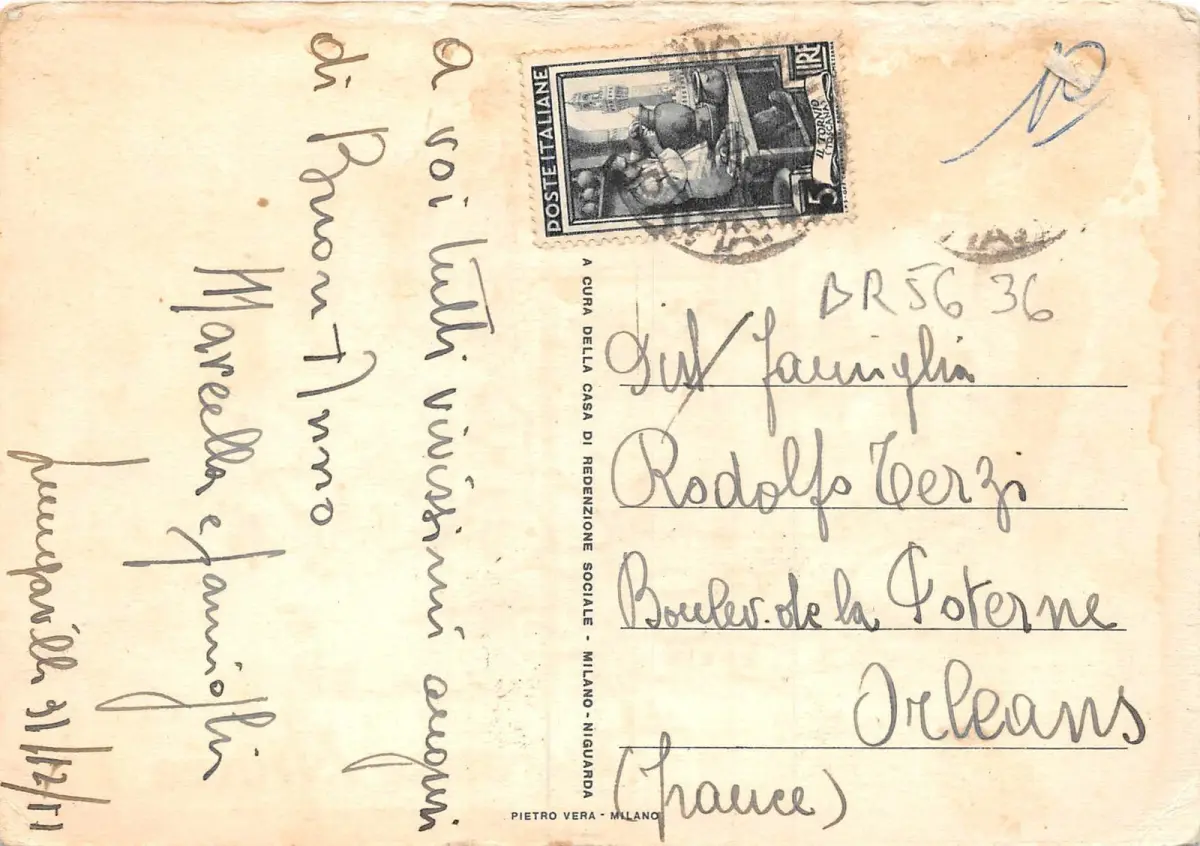 a voi tutti vivissimi auguri
di Buon Anno
Marcella e famiglia
31/12/51
POSTE ITALIANE
LIRE
5
IL TORNIO
TOSCANA
A CURA DELLA CASA DI REDENZIONE SOCIALE - MILANO-NIGUARDA
PIETRO VERA - MILANO
BR 56 36
Dist famiglia
Rodolfo Terzi
Boulev. de la Poterne
Orleans
(france)